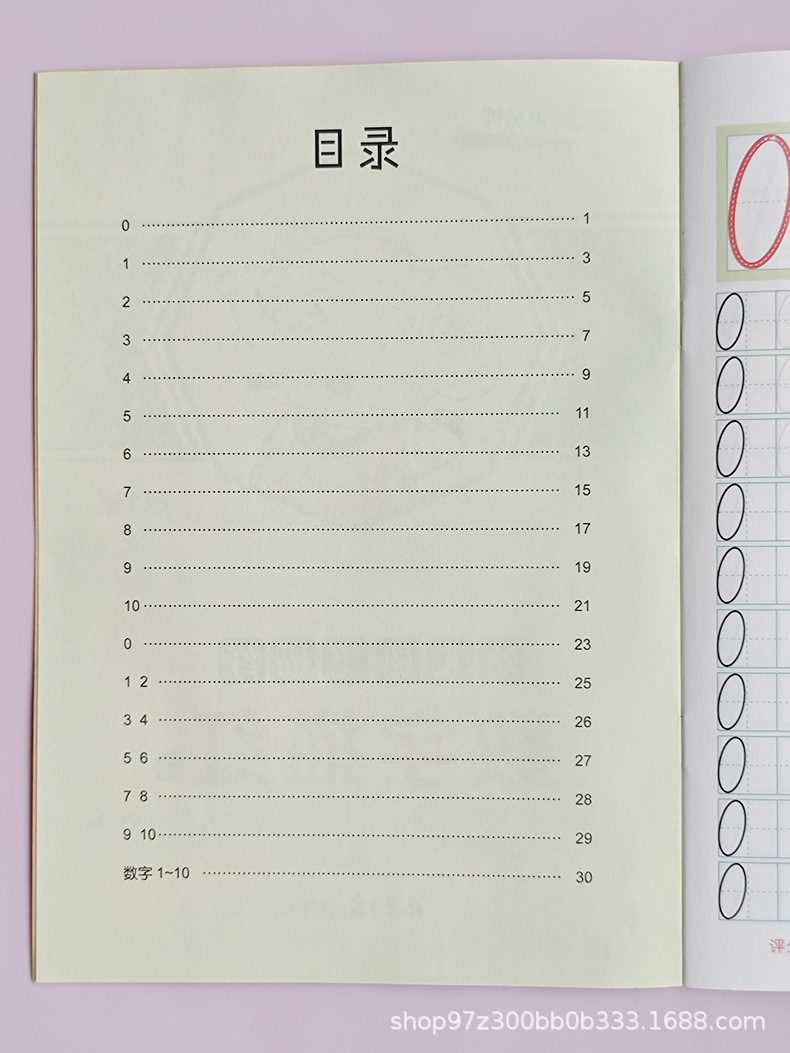 目录
0 ………………………………………… 1
1 ………………………………………… 3
2 ………………………………………… 5
3 ………………………………………… 7
4 ………………………………………… 9
5 ………………………………………… 11
6 ………………………………………… 13
7 ………………………………………… 15
8 ………………………………………… 17
9 ………………………………………… 19
10 ………………………………………… 21
0 ………………………………………… 23
1 2 ………………………………………… 25
3 4 ………………………………………… 26
5 6 ………………………………………… 27
7 8 ………………………………………… 28
9 10 ………………………………………… 29
数字 1~10 ………………………………………… 30
0
0
0
0
0
0
0
0
0
0
0
评
shop97z300bb0b333.1688.com